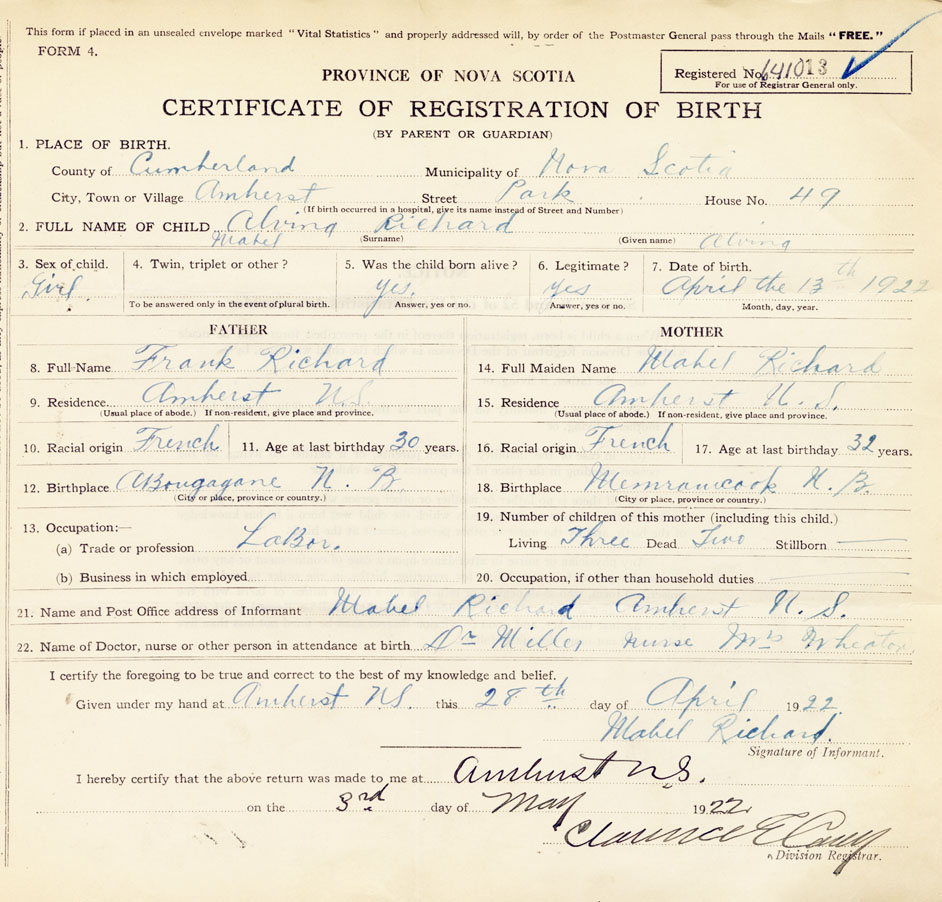 This form if placed in an unsealed envelope marked "Vital Statistics" and properly addressed will, by order of the Postmaster General pass through the Mails "FREE."
FORM 4.
Registered No. 641013
For use of Registrar General only.
PROVINCE OF NOVA SCOTIA
CERTIFICATE OF REGISTRATION OF BIRTH
(BY PARENT OR GUARDIAN)
1. PLACE OF BIRTH.
County of Cumberland Municipality of Nova Scotia
City, Town or Village Amherst Street Park House No. 49
(If birth occurred in a hospital, give its name instead of Street and Number)
2. FULL NAME OF CHILD Alving Richard
Mabel (Surname) (Given name) Alving
3. Sex of child. 4. Twin, triplet or other? 5. Was the child born alive? 6. Legitimate? 7. Date of birth.
Girl. yes, yes April the 13th 1922
To be answered only in the event of plural birth. Answer, yes or no. Answer, yes or no. Month, day, year.
FATHER MOTHER
8. Full Name Frank Richard 14. Full Maiden Name Mabel Richard
9. Residence Amherst N.S. 15. Residence Amherst N. S.
(Usual place of abode.) If non-resident, give place and province. (Usual place of abode.) If non-resident, give place and province.
10. Racial origin French 11. Age at last birthday 30 years. 16. Racial origin French 17. Age at last birthday 32 years.
12. Birthplace ABougagane N. B. 18. Birthplace Memramcook N. B.
(City or place, province or country.) (City or place, province or country.)
13. Occupation:— 19. Number of children of this mother (including this child.)
(a) Trade or profession LaBor. Living Three Dead Two Stillborn —
(b) Business in which employed 20. Occupation, if other than household duties —
21. Name and Post Office address of Informant Mabel Richard Amherst N. S.
22. Name of Doctor, nurse or other person in attendance at birth Dr Miller nurse Mrs Wheaton
I certify the foregoing to be true and correct to the best of my knowledge and belief.
Given under my hand at Amherst N.S. this 28th day of April 1922.
Mabel Richard.
Signature of Informant.
I hereby certify that the above return was made to me at Amherst N.S.
on the 3rd day of May 1922
Clarence E
Division Registrar.